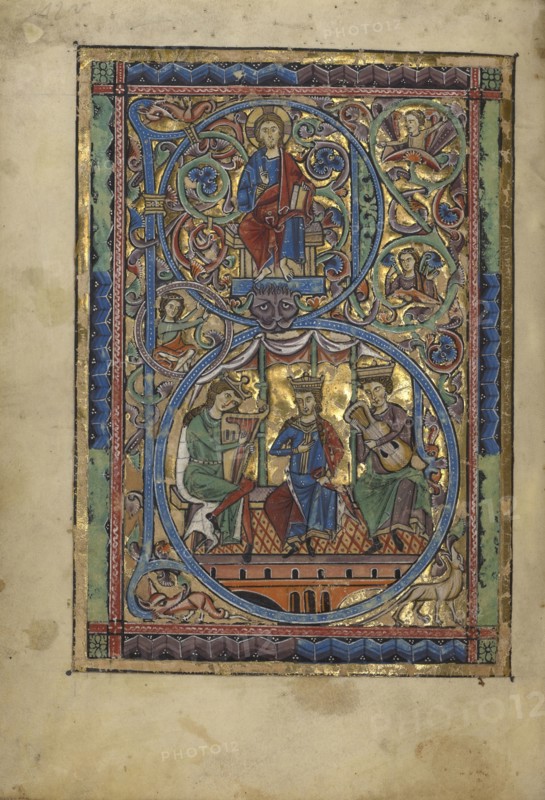 PHOTO12
PHOTO12
PHOTO12